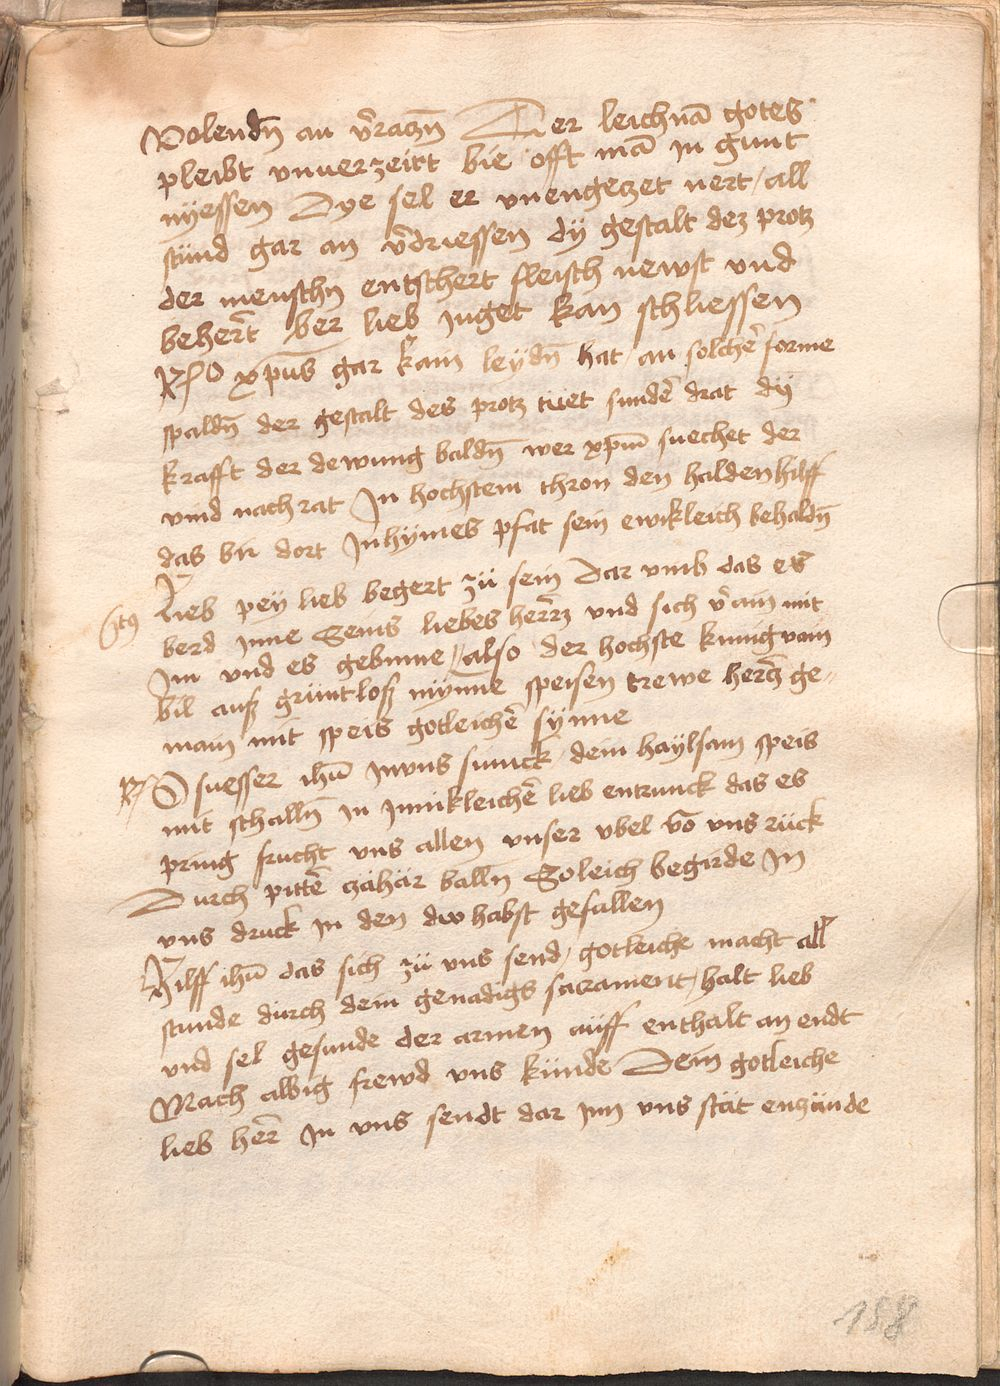 Volendn̄ an v̄razn̄ Der leichnā gotes
pleibt vnuerzeirt bie offt mā in gunt
nyessen Dye sel er vnengeczet nert / all
stund gar an v̄driessen dÿ gestalt dez protz
der menschn̄ entschert fleisch newst vnd
behert̄ ber lieb Inget kan schliessen
xp̄us gar kain leydn̄ hat an solchē forme
spaldn̄ der gestalt des protz tüet sundē drat dÿ
krafft der dewung baldn̄ wer xpm̄ suechet der
vind nach rat In hochstem thron den halden hilff
das bir dort In hÿmes pfat sein ewikleich behaldn̄
Lieb peÿ lieb begert zü sein Dar vmb das es
berd Inne Seins liebes hercz vnd sich v̄ain mit
Im vnd es gebinne // also der hochste kunig vain
bil auß grüntloß mÿnne speisen trewe hercz ge=
main mit speis gotleichē sÿnne
R O suesser ihū In vns sinnck dein haylsam speis
mit schalln̄ in Innikleichē lieb entrunck das es
pring frucht vns allen vnser vbel vō vns rück
Durch pittē zähär balln̄ Soleich begirde In
vns druck In den dw habst gefallen
Hilff ihū das sich zü vns send / gotleiche macht all
stunde durch dein genadigs sacrament / halt lieb
vnd sel gesunde der armen auff enthalt an endt
Mach albig frewd vns künde Dein gotleiche
lieb her̄ In vns sendt dar Inn vns stät enzünde
188